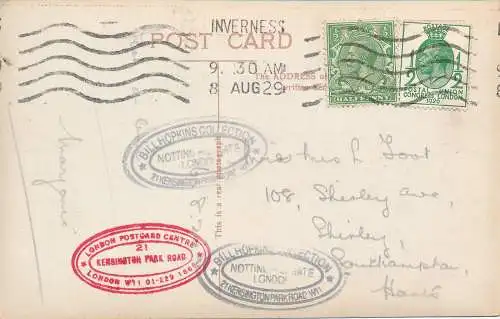 INVERNESS
9. 30 AM
8 AUG 29
POST CARD
The ADDRESS
written
HALFPENNY
POSTAGE
1/2
POSTAL UNION
CONGRESS LONDON
1929
BILL HOPKINS COLLECTION
NOTTING GATE
LONDON
21 KENSINGTON PARK ROAD W11
This is a real photograph
Marjorie
L. Foot
108, Shirley Ave,
Shirley,
Southampton,
Hants
LONDON POSTCARD CENTRE
21
KENSINGTON PARK ROAD
LONDON W11 01-229 1888
BILL HOPKINS COLLECTION
NOTTING GATE
LONDON
21 KENSINGTON PARK ROAD W11